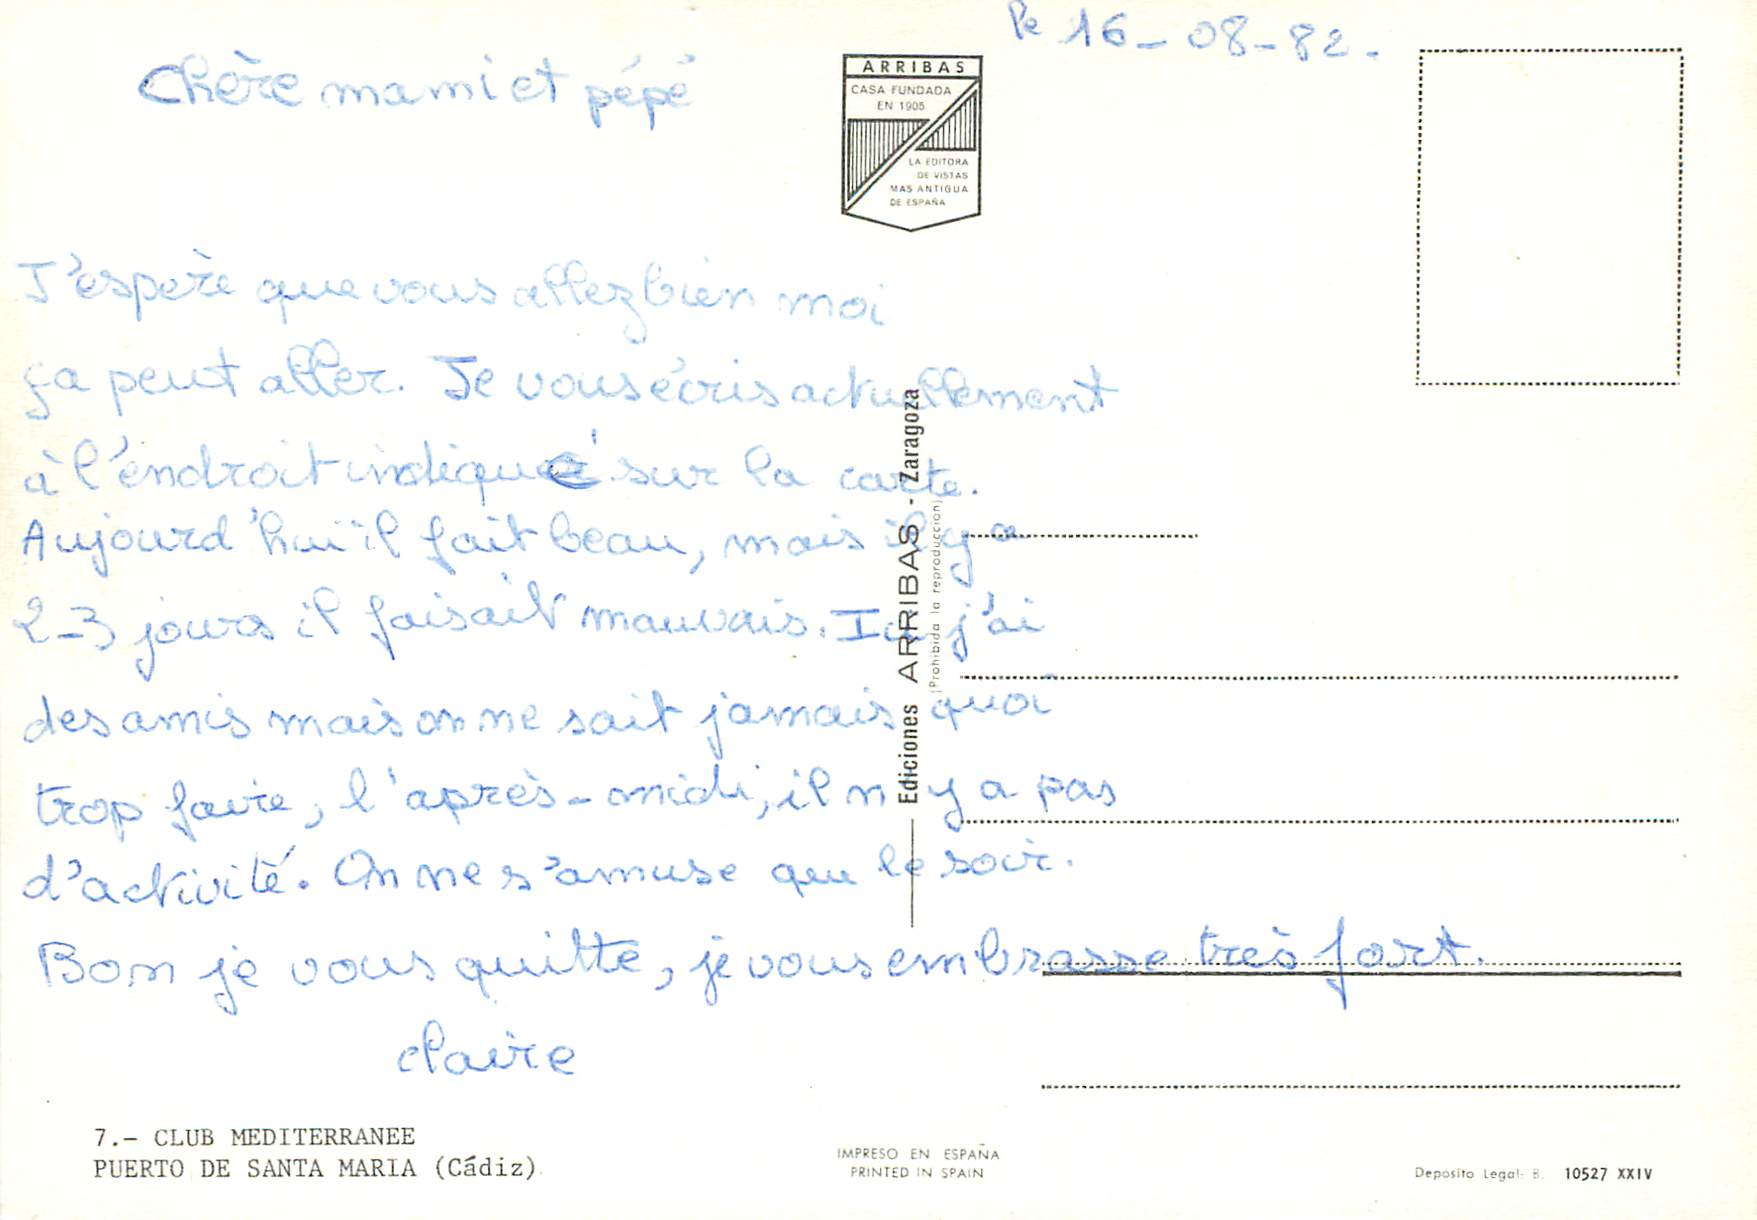 le 16-08-82.
Chère mami et pépé
ARRIBAS
CASA FUNDADA
EN 1905
LA EDITORA
DE VISTAS
MAS ANTIGUA
DE ESPAÑA
J'espère que vous allez bien moi
ça peut aller. Je vous écris actuellement
à l'éndroit indiqué sur la carte.
Aujourd'hui il fait beau, mais il y a
2-3 jours il faisait mauvais. Ici j'ai
des amis mais on ne sait jamais quoi
trop faire, l'après-midi, il n'y a pas
d'activité. On ne s'amuse que le soir.
Bon je vous quitte, je vous embrasse très fort.
claire
Ediciones ARRIBAS - Zaragoza
(Prohibida la reproduccion)
7.- CLUB MEDITERRANEE
PUERTO DE SANTA MARIA (Cádiz)
IMPRESO EN ESPAÑA
PRINTED IN SPAIN
Deposito Legal: B. 10527 XXIV